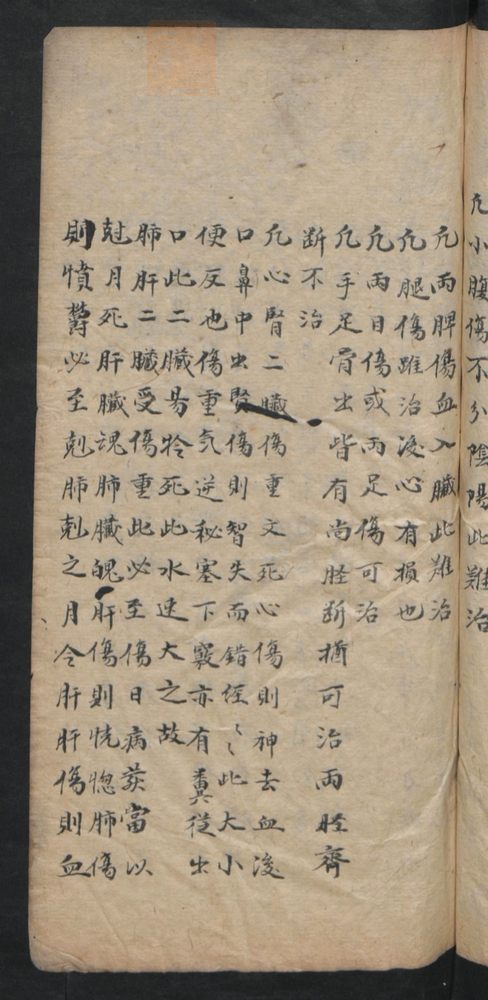 凢小腹傷不分陰陽此難治
凢兩脾傷血入臟此难治
凢腿傷雖治湲心有損也
凢兩目傷或兩足傷可治
凢手足骨出皆有尚脛斷猶可治兩脛齊
斷不治
凢心腎二臟傷重文死心傷則神去血湲
口鼻中出腎傷則智失而錯經〻此大小
便反也傷重气逆秘塞下竅亦有糞從出
口此二臟昜冷死此水速大之故
肺肝二臟受傷重此必至傷日病莢當以
尅月死肝臟魂肺臟魄肝傷則恍惚肺傷
則憤欝必至尅肺剋之月令肝肝傷則血